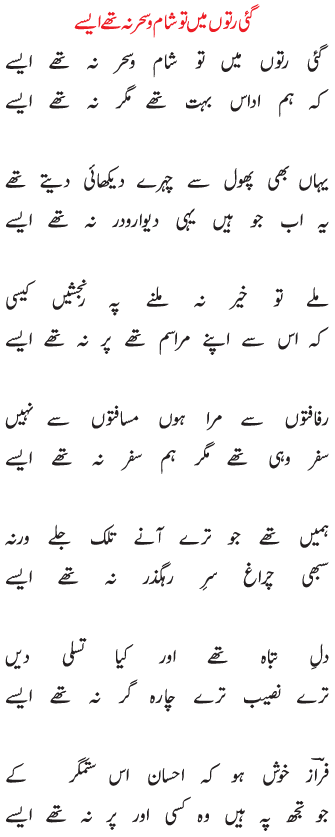 گئی رتوں میں تو شام و سحر نہ تھے ایسے
گئی رتوں میں تو شام وسحر نہ تھے ایسے
کہ ہم اداس بہت تھے مگر نہ تھے ایسے
یہاں بھی پھول سے چہرے دیکھائی دیتے تھے
یہ اب جو ہیں یہی دیوارودر نہ تھے ایسے
ملے تو خیر نہ ملنے پہ رنجشیں کیسی
کہ اس سے اپنے مراسم تھے پر نہ تھے ایسے
رفاقتوں سے مرا ہوں مسافتوں سے نہیں
سفر وہی تھے مگر ہم سفر نہ تھے ایسے
ہمیں تھے جو ترے آنے تلک جلے ورنہ
سبھی چراغ سرِ رہگذر نہ تھے ایسے
دلِ تباہ تھے اور کیا تسلی دیں
ترے نصیب ترے چارہ گر نہ تھے ایسے
فرازؔ خوش ہو کہ احسان اس ستمگر کے
جو تجھ پہ ہیں وہ کسی اور پر نہ تھے ایسے